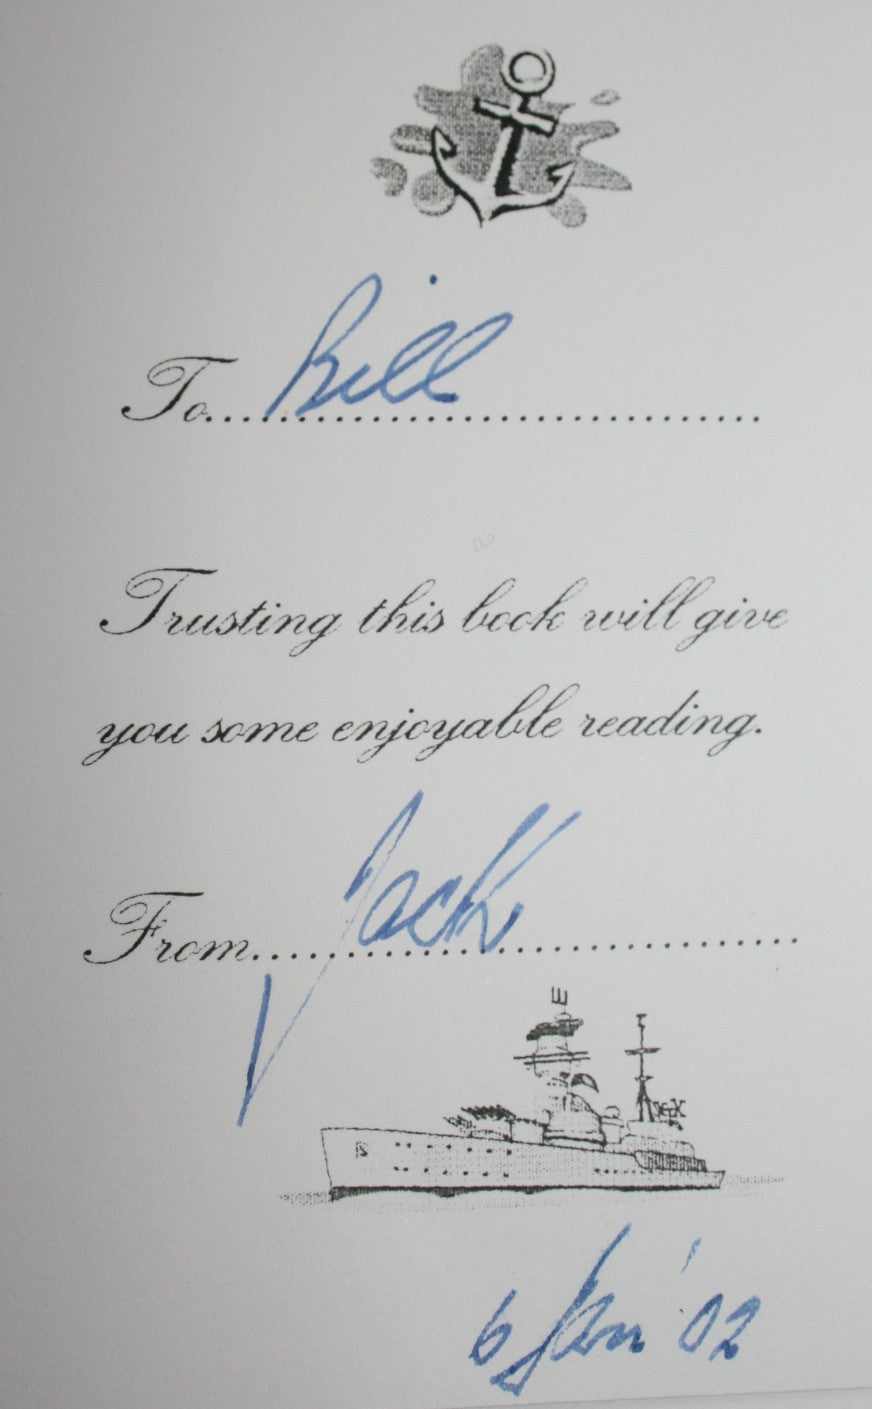 To.... Bill ..............................
Trusting this book will give
you some enjoyable reading.
From..... Jack .........................
6 Jan '02